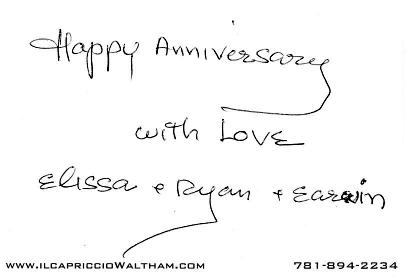 Happy Anniversary
with Love
Elissa + Ryan +
www.ilcapriccioWaltham.com 781-894-2234